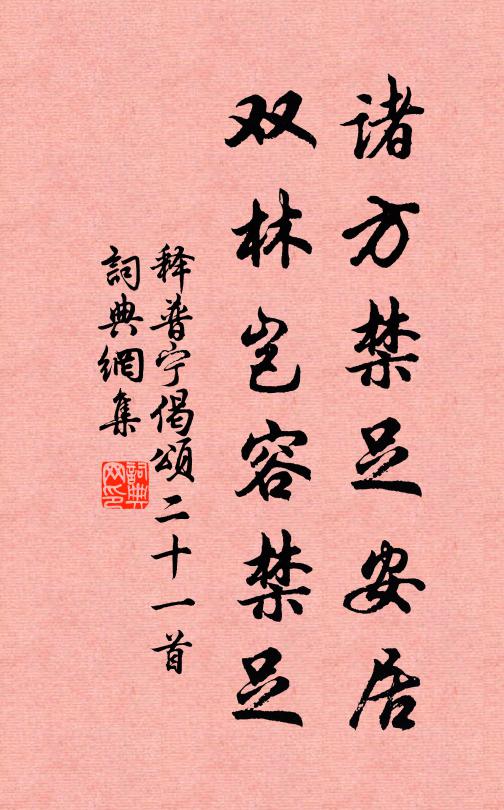 诸方禁足安居
双林岂容禁足
释普宁偈颂二十一首
詞典網集
詞典网印